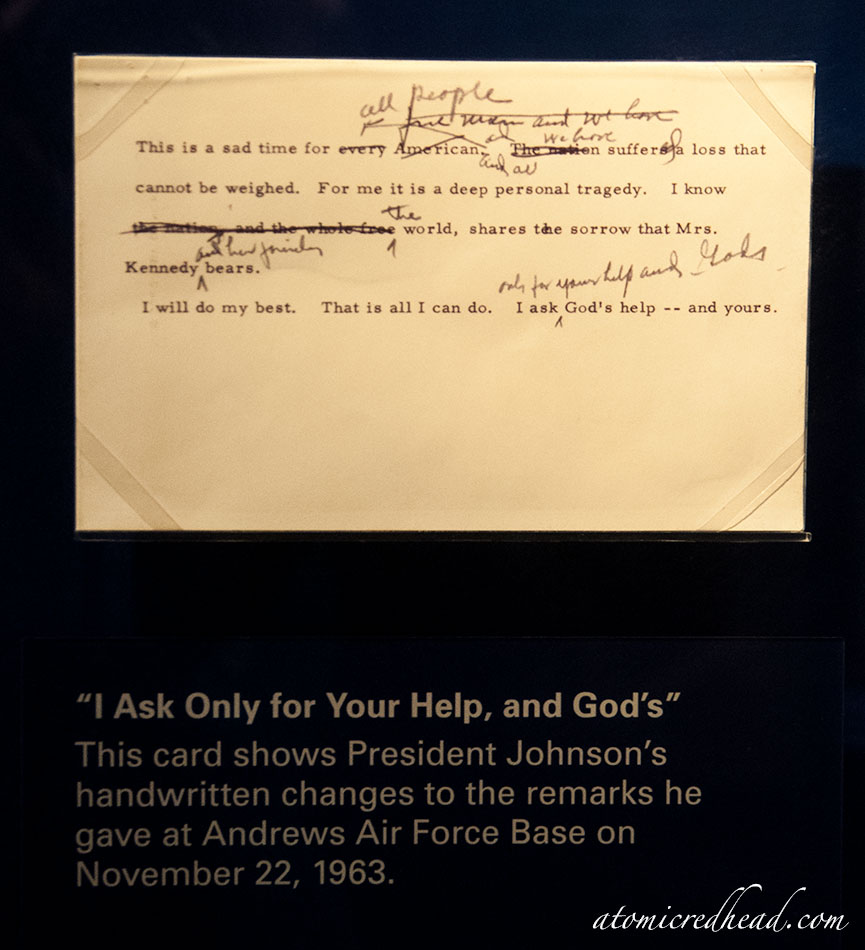 all people
free man and we have
we have
This is a sad time for every American. The nation suffers a loss that
and all
cannot be weighed. For me it is a deep personal tragedy. I know
the
the nation, and the whole free world, shares the sorrow that Mrs.
and her friends
only for your help and God's
Kennedy bears.
I will do my best. That is all I can do. I ask God's help -- and yours.
“I Ask Only for Your Help, and God’s”
This card shows President Johnson’s
handwritten changes to the remarks he
gave at Andrews Air Force Base on
November 22, 1963.
atomicredhead.com